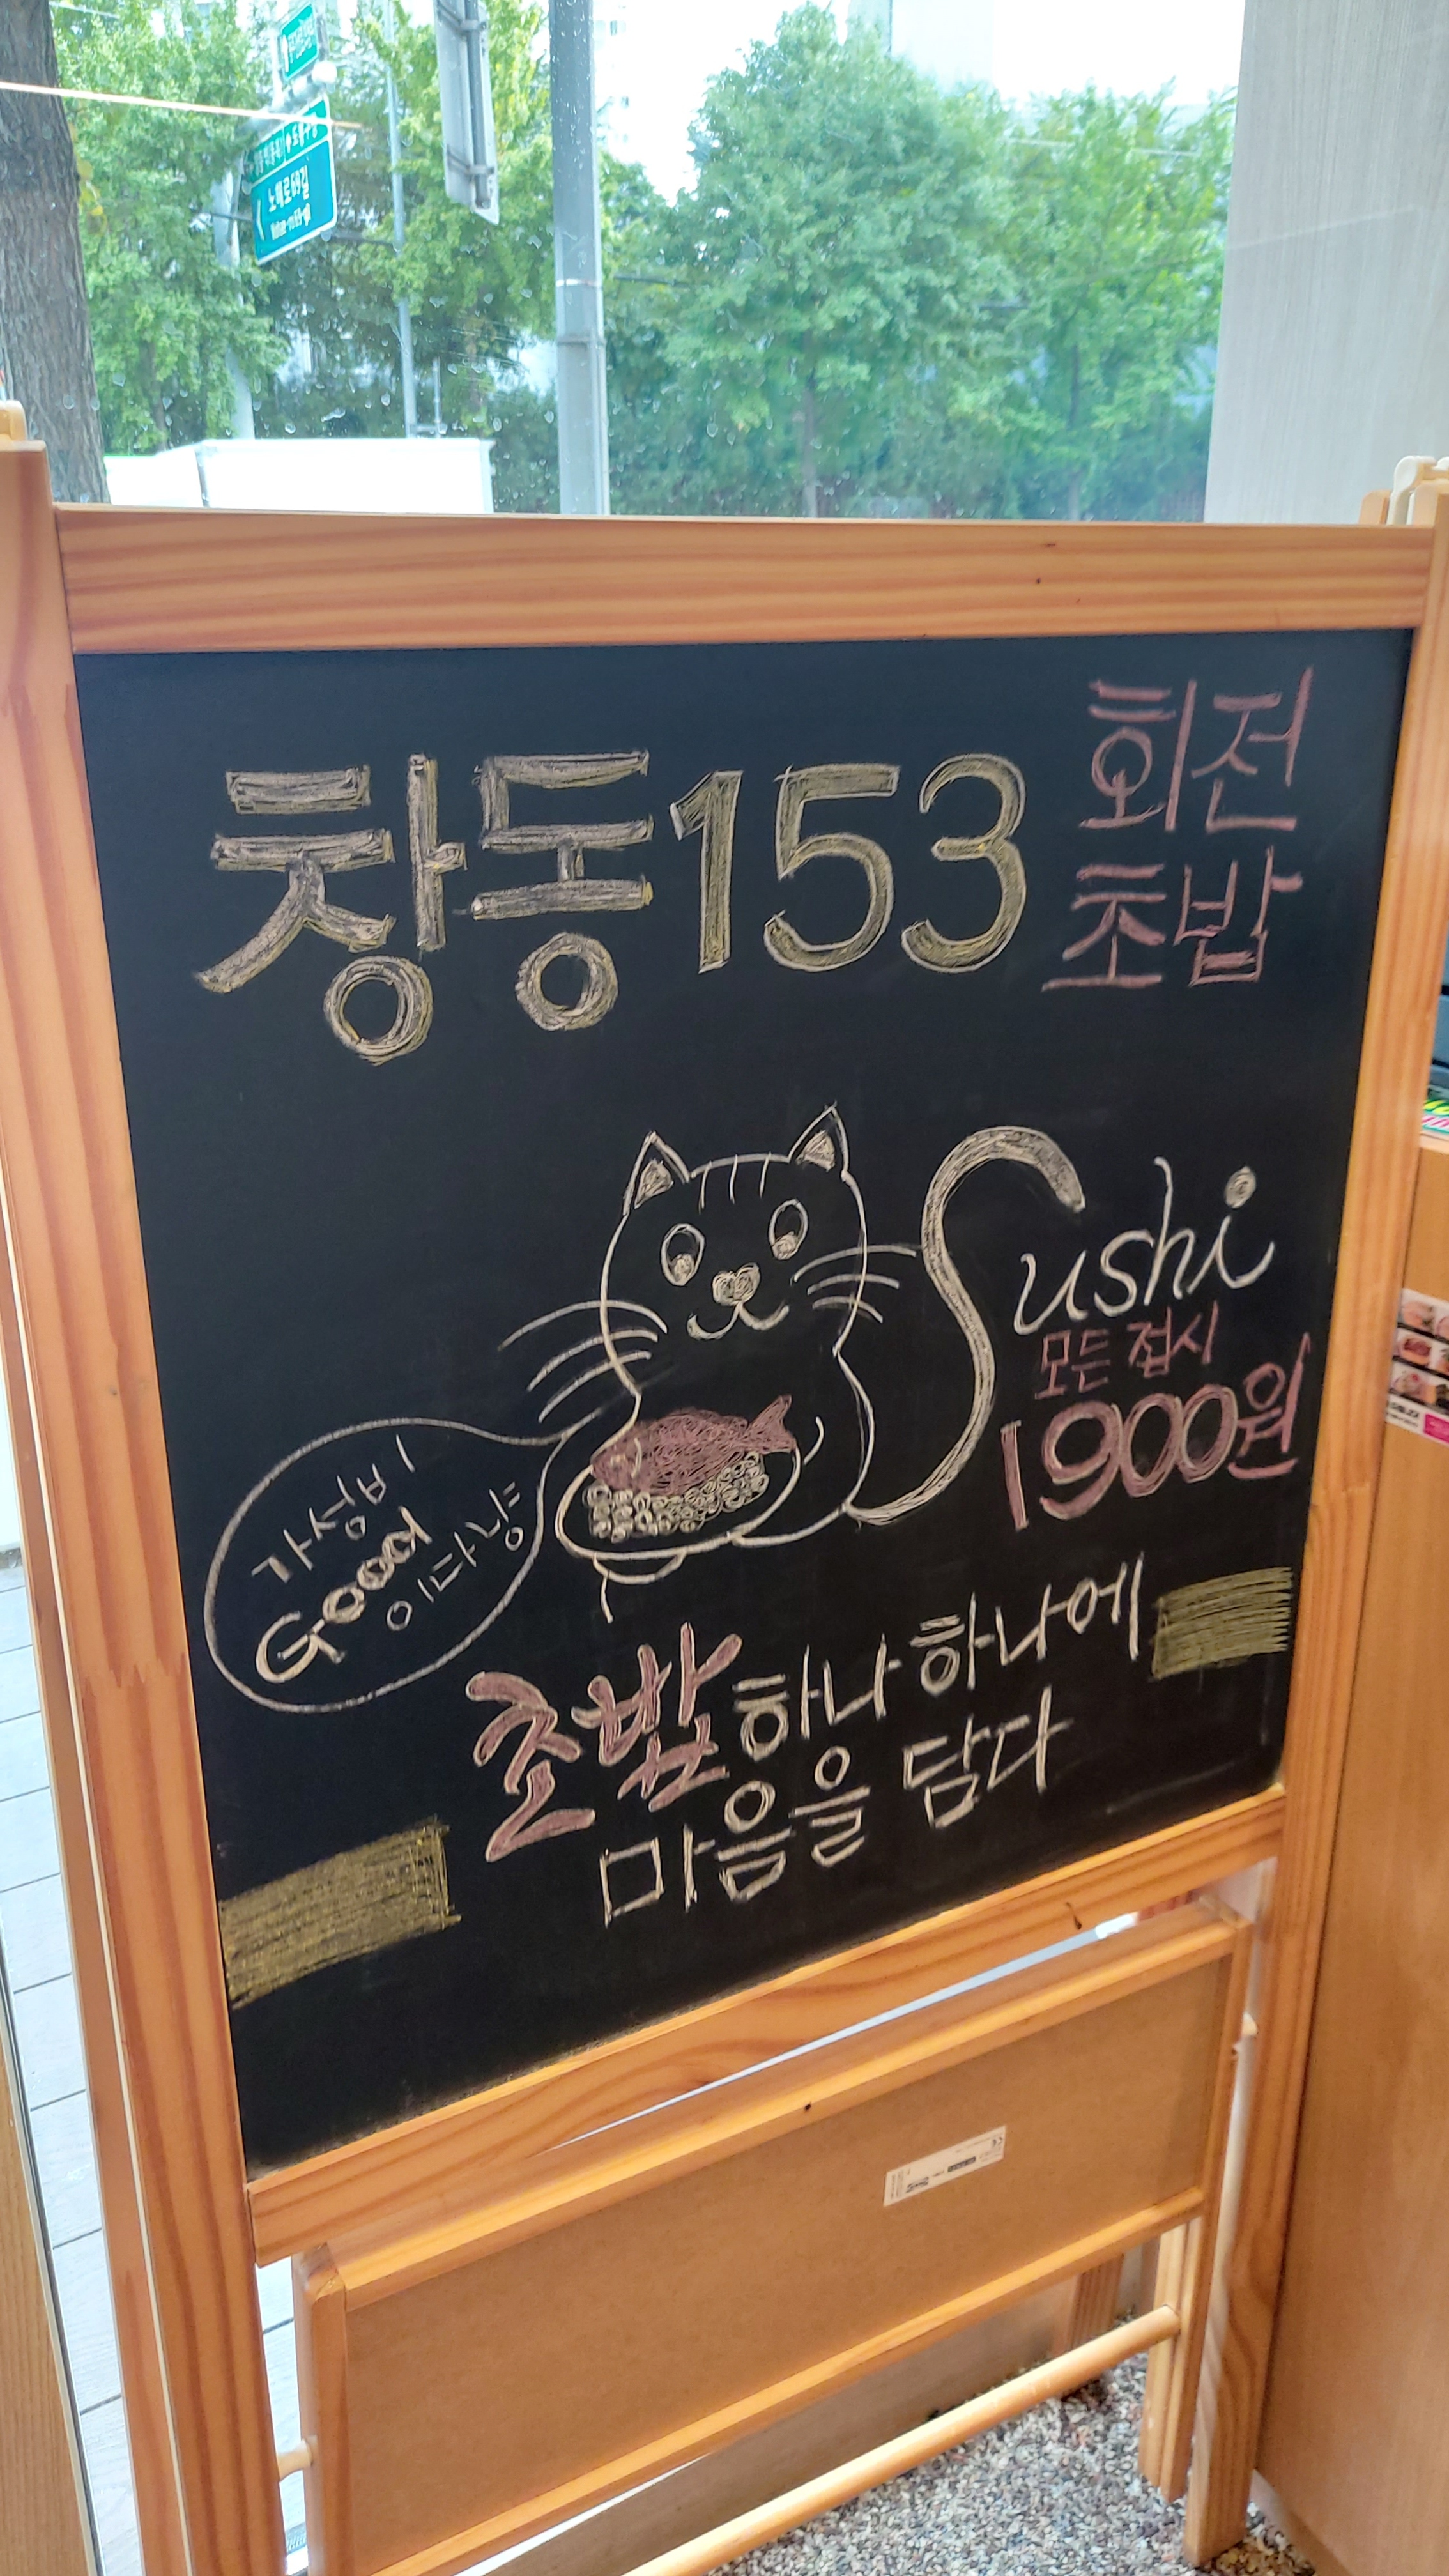 노해로69길
창동153
회전
초밥
Sushi
모든 접시
1900원
가성비
Good
이다냥
초밥 하나 하나에
마음을 담다